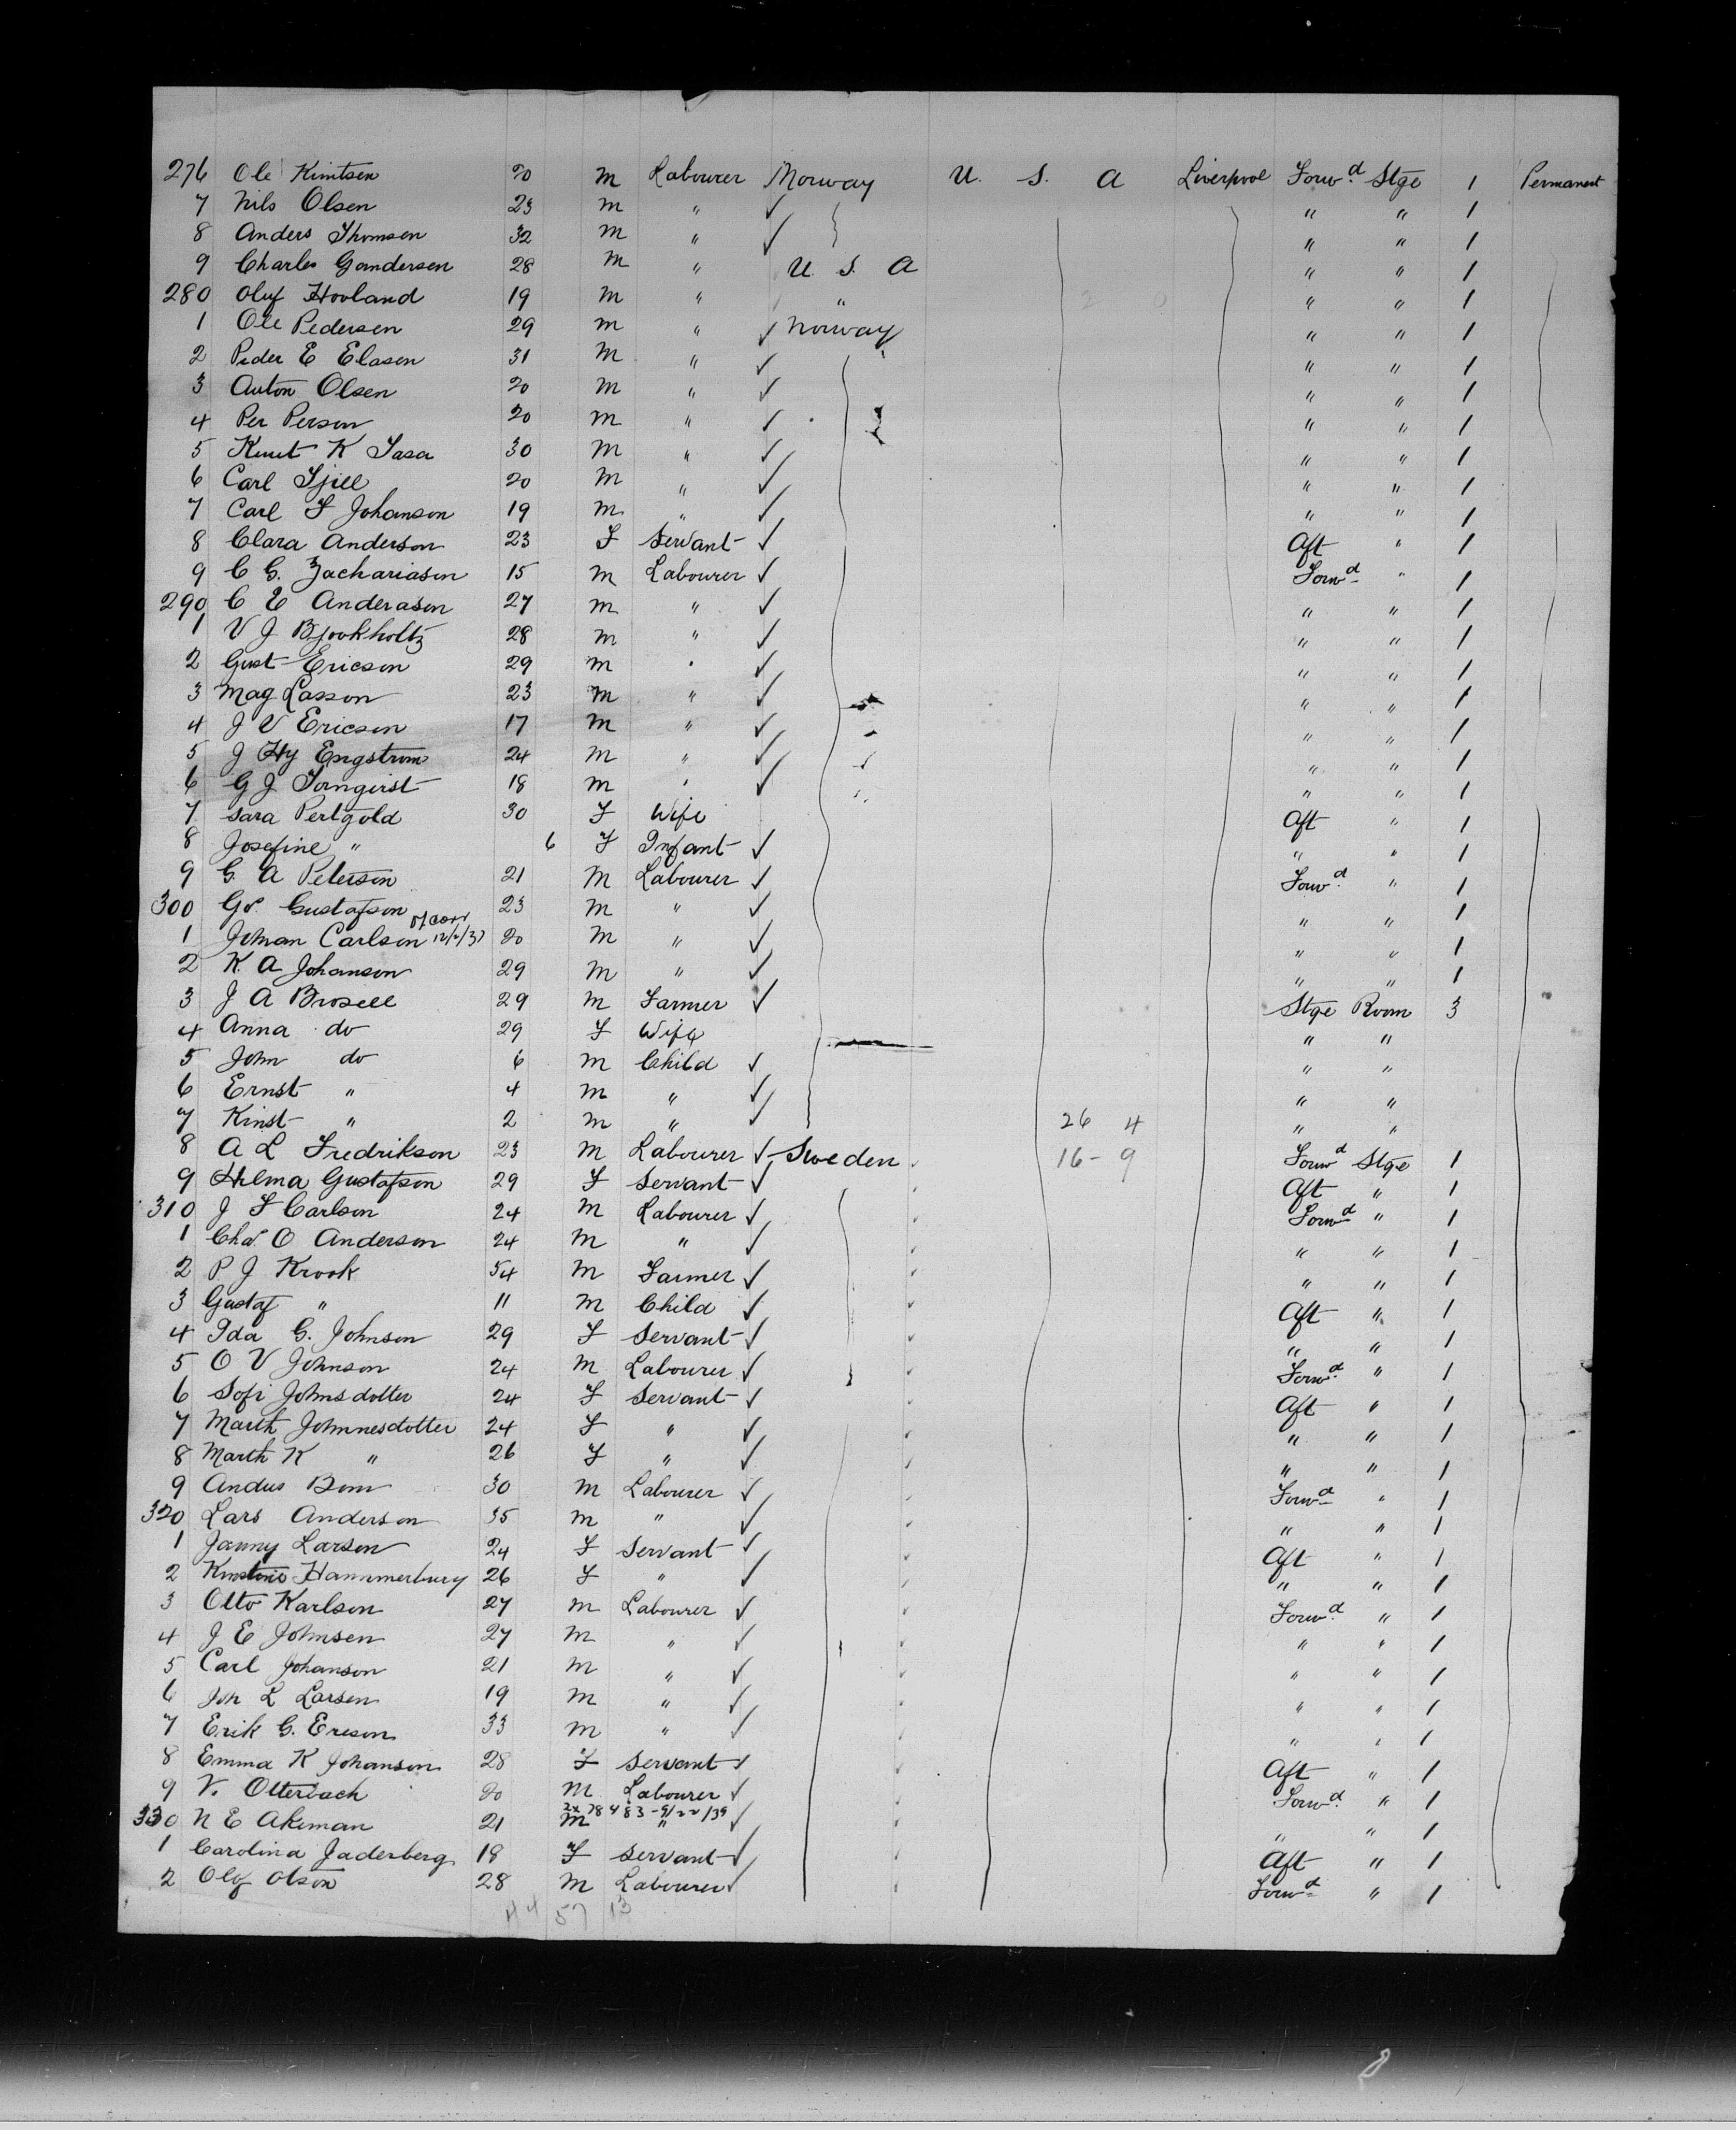 276 Ole Kinitsen 20 m Labourer Norway U. S. A Liverpool Forwd Stge 1 Permanent
7 Nils Olsen 23 m " ✓ " " 1
8 Anders Thomsen 32 m " ✓ " " 1
9 Charles Gundersen 28 m " U. S. A " " 1
280 Oluf Hovland 19 m " " " " 1
1 Ole Pedersen 29 m " ✓ Norway " " 1
2 Peder E Elasen 31 m " ✓ " " 1
3 Anton Olsen 20 m " ✓ " " 1
4 Per Person 20 m " ✓ " " 1
5 Knut K Tasa 30 m " ✓ " " 1
6 Carl Tjill 20 m " ✓ " " 1
7 Carl F Johanson 19 m " ✓ " " 1
8 Clara Anderson 23 F Servant ✓ Aft " 1
9 C G. Zachariasen 15 m Labourer ✓ Forwd " 1
290 C E Anderasen 27 m " ✓ " " 1
1 V J Bjookholtz 28 m " ✓ " " 1
2 Gust Ericson 29 m " ✓ " " 1
3 Mag Lasson 23 m " ✓ " " 1
4 J V Ericson 17 m " ✓ " " 1
5 J Hy Engstrom 24 m " ✓ " " 1
6 G J Tornqvist 18 m " ✓ " " 1
7 Sara Pertgold 30 F Wife Aft " 1
8 Josefine " 6 F Infant ✓ " " 1
9 G. A Peterson 21 M Labourer ✓ Forwd " 1
300 Gs. Gustafson 23 m " ✓ " " 1
1 Johan Carlson 20 m " ✓ " " 1
2 K. A Johanson 29 m " ✓ " " 1
3 J A Brosell 29 m Farmer ✓ Stge Room 3
4 Anna do 29 F Wife " "
5 John do 6 m Child ✓ " "
6 Ernst " 4 m " ✓ " "
7 Kinst " 2 m " ✓ 26 4 " "
8 A L Fredrikson 23 m Labourer ✓ Sweden 16 - 9 Forwd Stge 1
9 Hilma Gustafson 29 F Servant ✓ Aft " 1
310 J F Carlson 24 m Labourer ✓ Forwd " 1
1 Chas. O Anderson 24 m " ✓ " " 1
2 P J Krook 54 m Farmer ✓ " " 1
3 Gustaf " 11 m Child ✓ Aft " 1
4 Ida G. Johnson 29 F Servant ✓ " " 1
5 O V Johnson 24 m Labourer ✓ Forwd " 1
6 Sofi Johnsdotter 24 F Servant ✓ Aft " 1
7 Marth Johnnesdotter 24 F " ✓ " " 1
8 Marth K " 26 F " ✓ " " 1
9 Andus Bom 30 m Labourer ✓ Forwd " 1
320 Lars Anderson 35 m " ✓ " " 1
1 Janny Larsen 24 F Servant ✓ Aft " 1
2 Kinstine Hammerburg 26 F " ✓ " " 1
3 Otto Karlson 27 m Labourer ✓ Forwd " 1
4 J E Johnsen 27 m " ✓ " " 1
5 Carl Johanson 21 m " ✓ " " 1
6 Joh L Larsen 19 m " ✓ " " 1
7 Erik G. Ereson 33 m " ✓ " " 1
8 Emma K Johanson 28 F Servant ✓ Aft " 1
9 V. Otterbach 20 m Labourer ✓ Forwd " 1
330 N E Akeman 21 m " ✓ " " 1
1 Carolina Jaderberg 18 F Servant ✓ Aft " 1
2 Olof Olson 28 m Labourer ✓ Forwd " 1
44 57 13